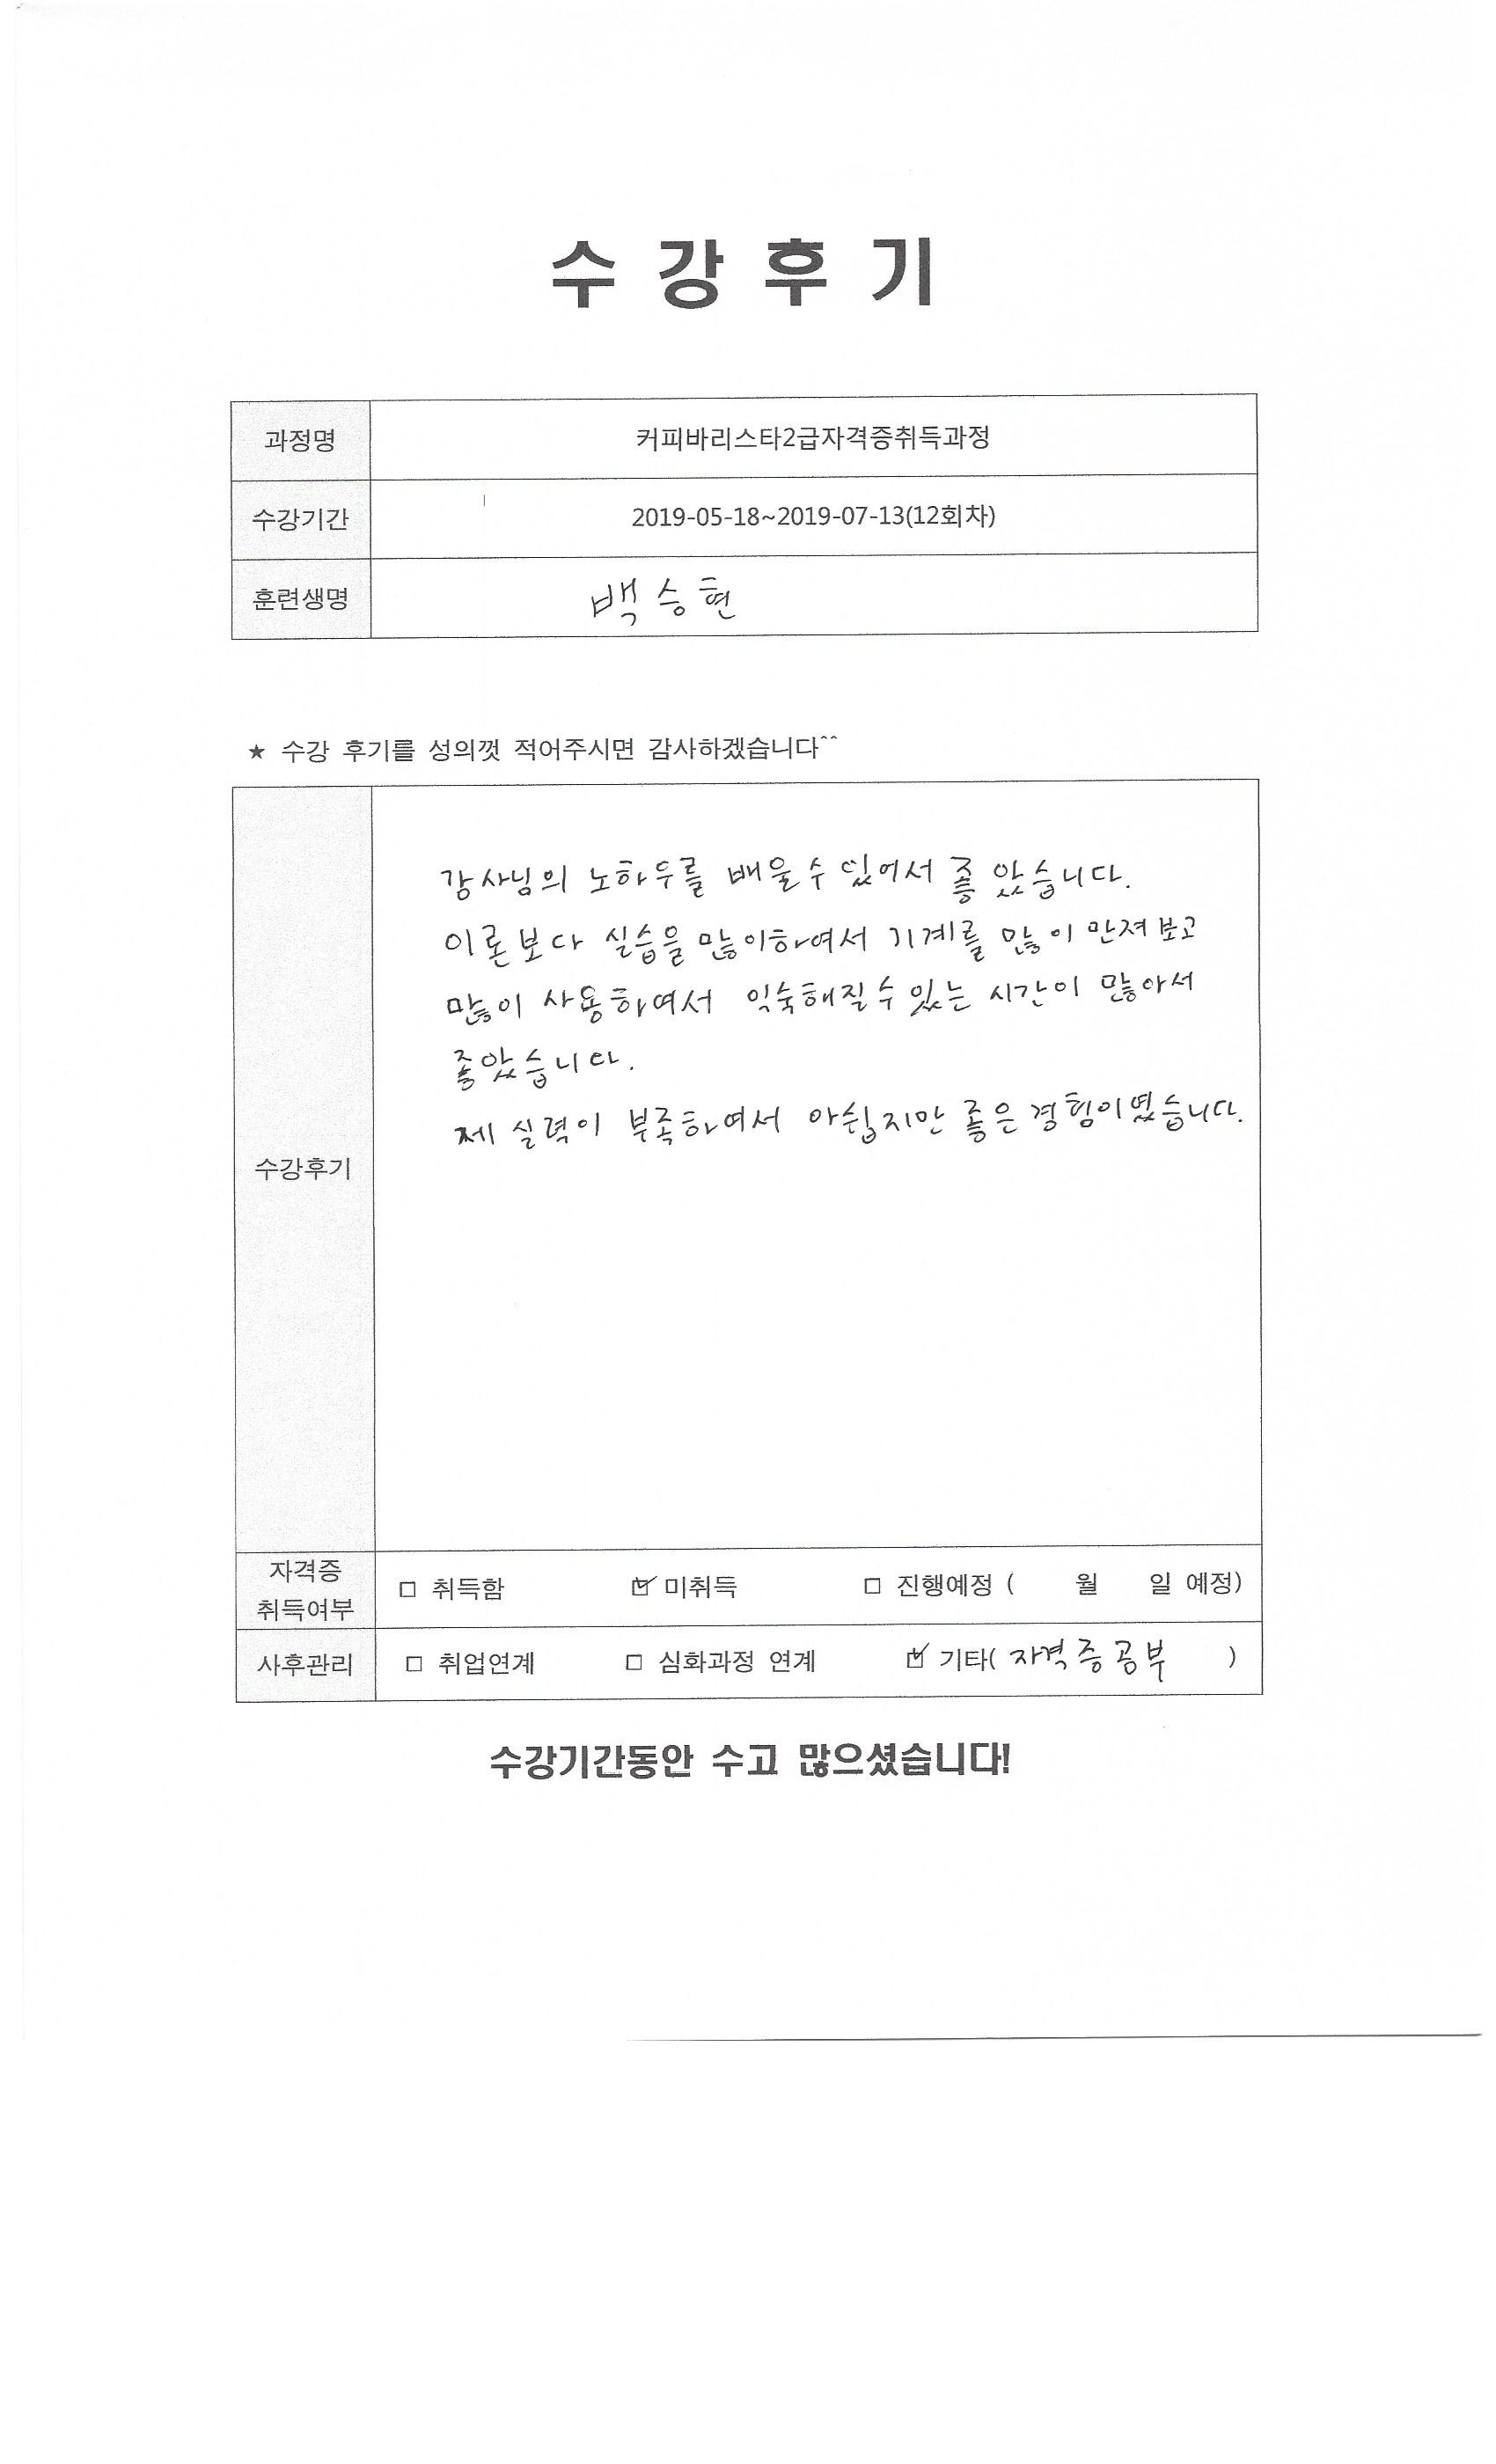 수 강 후 기
과정명 커피바리스타2급자격증취득과정
수강기간 2019-05-18~2019-07-13(12회차)
훈련생명 백승현
★ 수강 후기를 성의껏 적어주시면 감사하겠습니다^^
강사님의 노하우를 배울수 있어서 좋았습니다.
이론보다 실습을 많이하여서 기계를 많이 만져보고
많이 사용하여서 익숙해질수 있는 시간이 많아서
좋았습니다.
제 실력이 부족하여서 아쉽지만 좋은 경험이였습니다.
수강후기
자격증
취득여부
□ 취득함 ☑ 미취득 □ 진행예정 ( 월 일 예정)
사후관리 □ 취업연계 □ 심화과정 연계 ☑ 기타( 자격증공부 )
수강기간동안 수고 많으셨습니다!